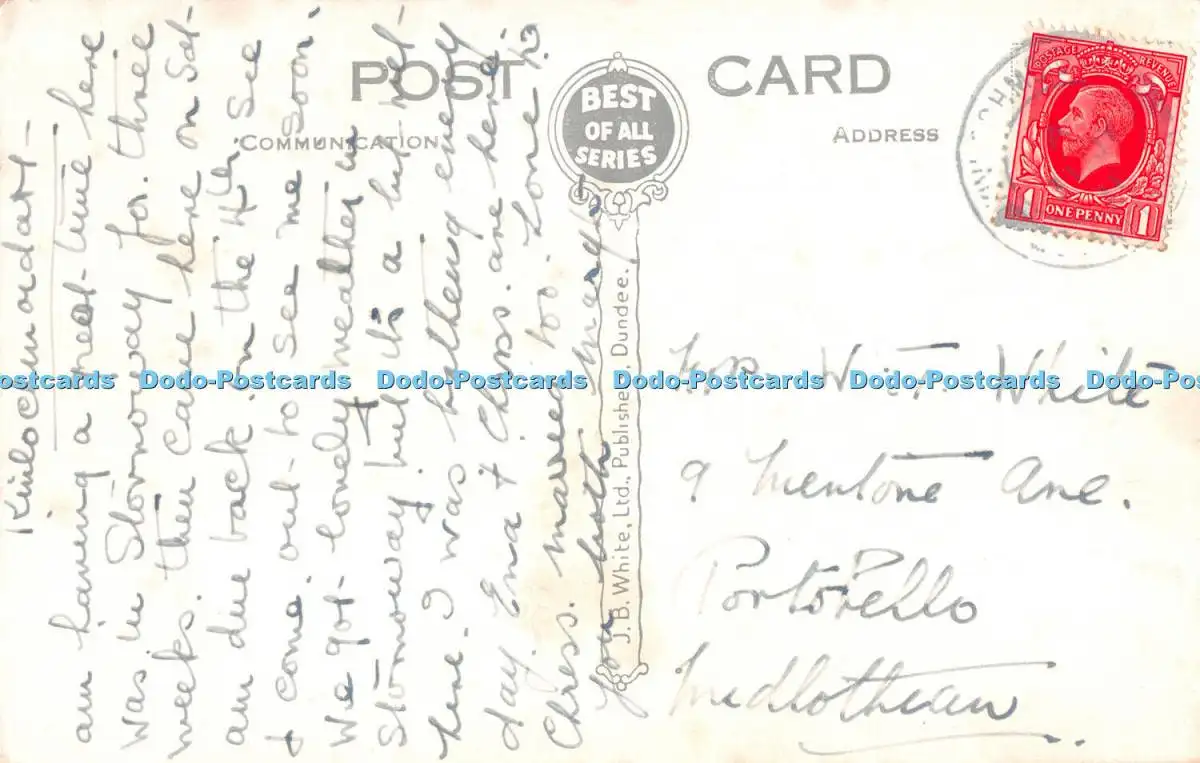 POST CARD
COMMUNICATION
ADDRESS
BEST
OF ALL
SERIES
POSTAGE REVENUE
1 ONE PENNY 1
J. B. White, Ltd., Publisher, Dundee.
Kinlochmoidart -
am having a great time here
was in Stornoway for three
weeks. then came here on Sat-
am due back on the 4th. See
& come out to see me soon.
We got lovely weather in
Stornoway but it's a bit wet
here. I was bathing every
day. Ena & Chess. are here.
Chess. married too. Love to
you both
White
9 Mentone Ave.
Portobello
Midlothian
Dodo-Postcards Dodo-Postcards Dodo-Postcards Dodo-Postcards Dodo-Postcards